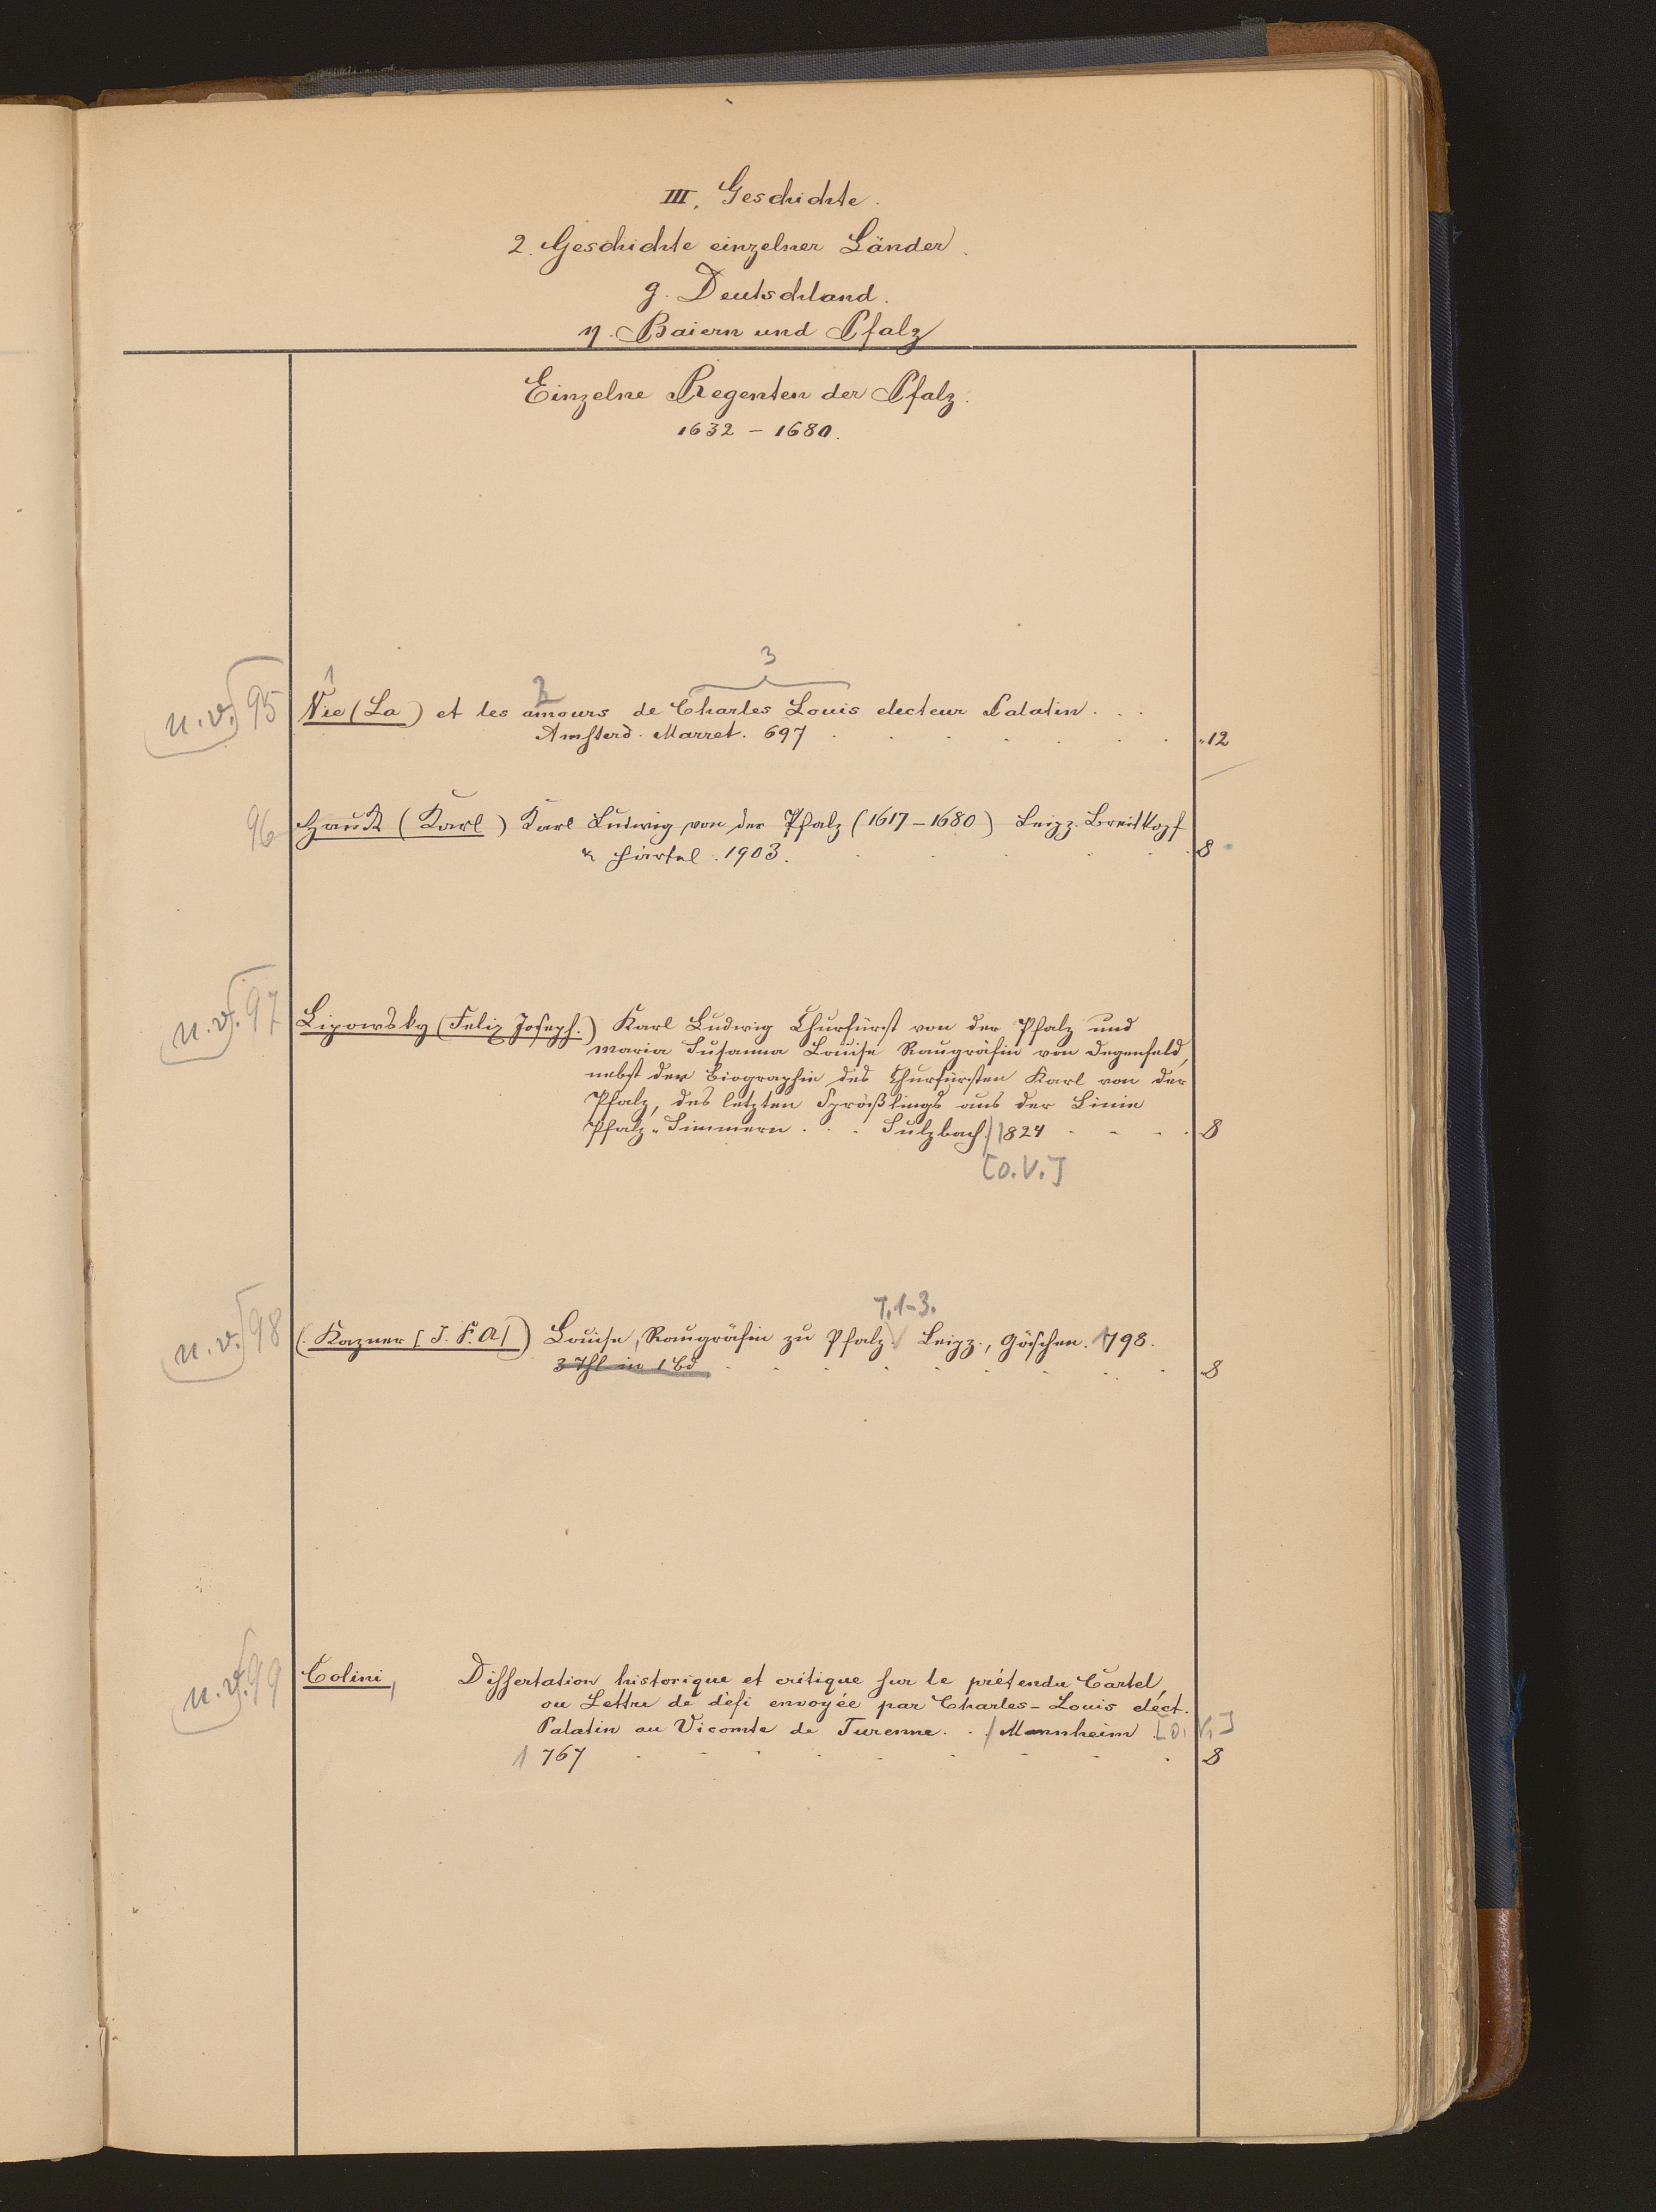 III. Geschichte.
2. Geschichte einzelner Länder.
g. Deutschland.
η. Baiern und Pfalz
Einzelne Regenten der Pfalz.
1632 - 1680.
1 2 3
n.v. 95 Vie (La) et les amours de Charles Louis electeur Palatin . . .
Amsterd. Marret. 697 . . . . . . . 12
96 Hauck (Karl) Karl Ludwig von der Pfalz (1617-1680) Leipz. Breitkopf
& Härtel. 1903. . . . . . 8
n.v. 97 Lipowsky (Felix Joseph.) Karl Ludwig Churfürst von der Pfalz und
Maria Susanna Louise Raugräfin von Degenfeld,
nebst der Biographie des Churfürsten Karl von der
Pfalz, des letzten Sprößlings aus der Linie
Pfalz-Simmern . . . Sulzbach / 1824 . . . . 8
[O.V.]
T. 1-3.
n.v. 98 (Kazner [J. F. A]) Louise, Raugräfin zu Pfalz. Leipz., Göschen. 1798.
3 Thl in 1 Bd . . . . . . . . . 8
n.v. 99 Colini, Dissertation historique et critique sur le prétendu Cartel,
ou Lettre de défi envoyée par Charles-Louis eléct.
Palatin au Vicomte de Turenne. . / Mannheim [O.V.]
1767 . . . . . . . . . 8